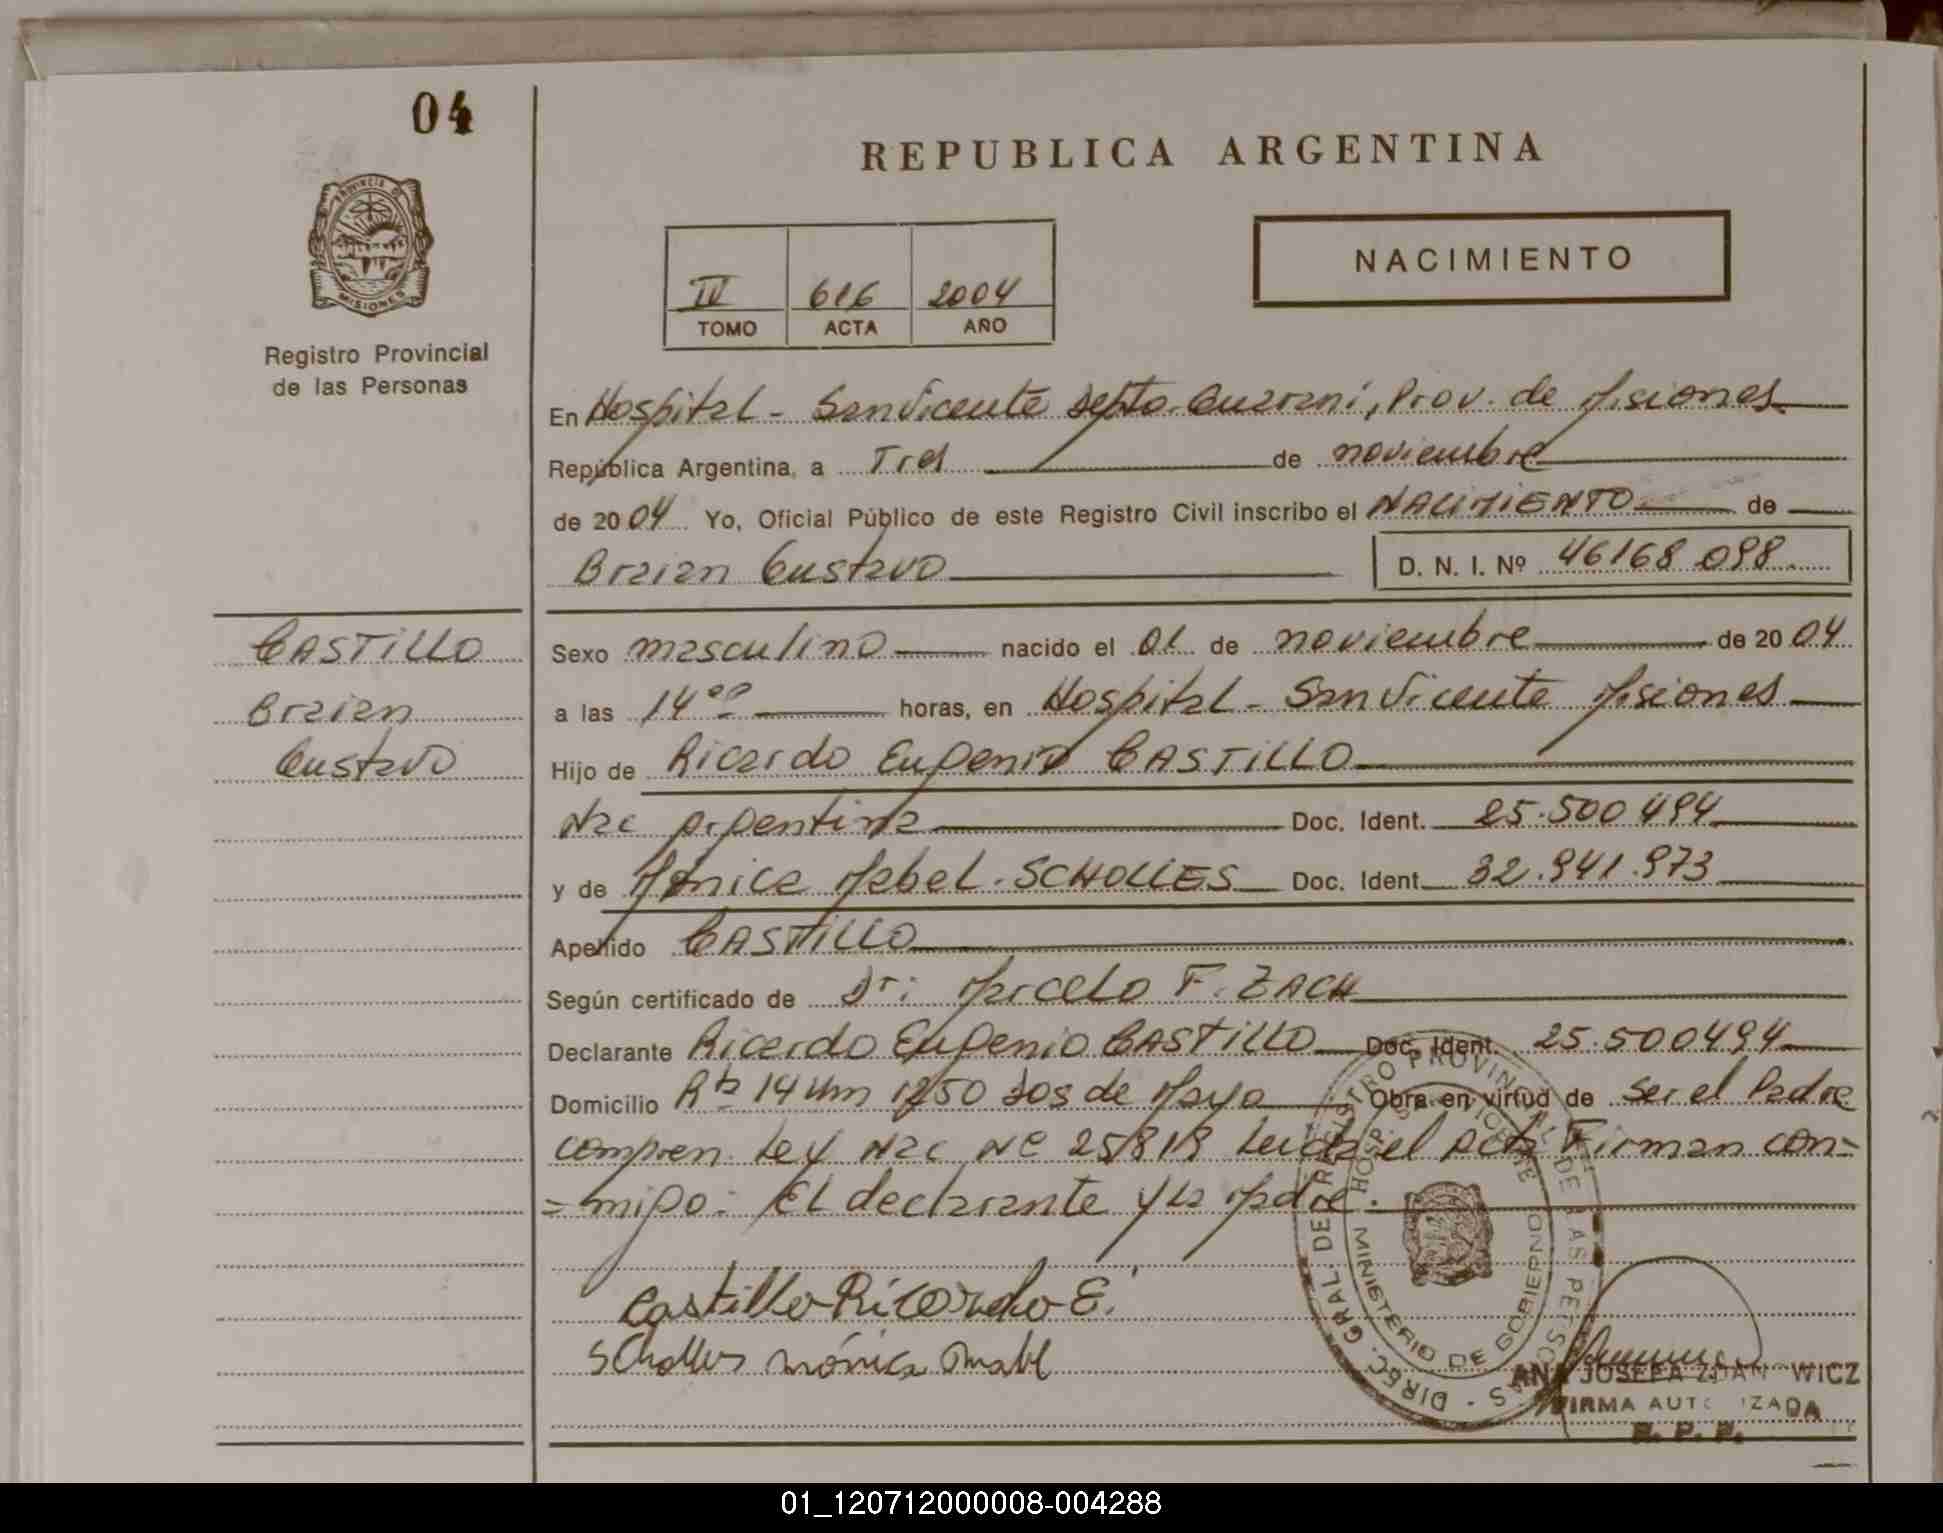 04
PROVINCIA DE
MISIONES
Registro Provincial
de las Personas
REPUBLICA ARGENTINA
IV 616 2004
TOMO ACTA AÑO
NACIMIENTO
En Hospital - San Vicente Depto. Guarani, Prov. de Misiones
República Argentina, a Tres de noviembre
de 20 04 Yo, Oficial Público de este Registro Civil inscribo el NACIMIENTO de
Braian Gustavo D. N. I. Nº 46168.098
CASTILLO
Braian
Gustavo
Sexo masculino nacido el 01 de noviembre de 20 04
a las 14°° horas, en Hospital - San Vicente Misiones
Hijo de Ricardo Eugenio CASTILLO
Nac Argentina Doc. Ident. 25.500.494
y de Mónica Mabel. SCHOLLES Doc. Ident. 32.941.973
Apellido CASTILLO
Según certificado de Dr: Marcelo F. ZACH
Declarante Ricardo Eugenio CASTILLO Doc. Ident. 25.500494
Domicilio Rta 14 Km 1250 Dos de Mayo Obra en virtud de Ser el Padre
compren. Ley Nac Nº 25819 Leida el Acta Firman con-
=migo: El declarante y la Madre.
Castillo Ricardo E.
Scholles mónica Mabel
DIREC. GRAL. DE REGISTRO PROVINCIAL DE LAS PERSONAS
MINISTERIO DE GOBIERNO
HOSP. S. VICENTE
ANA JOSEFA
FIRMA AUTORIZADA
R. P. P.
01_120712000008-004288